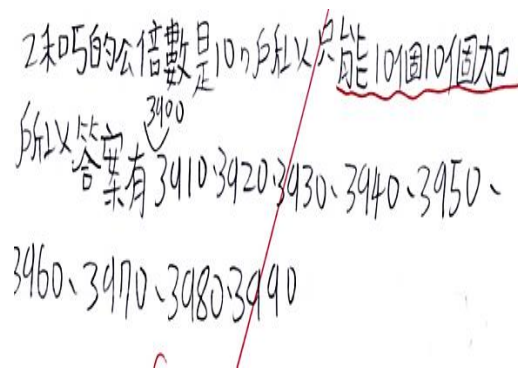 2和5的公倍數是10,所以只能10個10個加
3900
所以答案有3910、3920、3930、3940、3950、
3960、3970、3980、3990